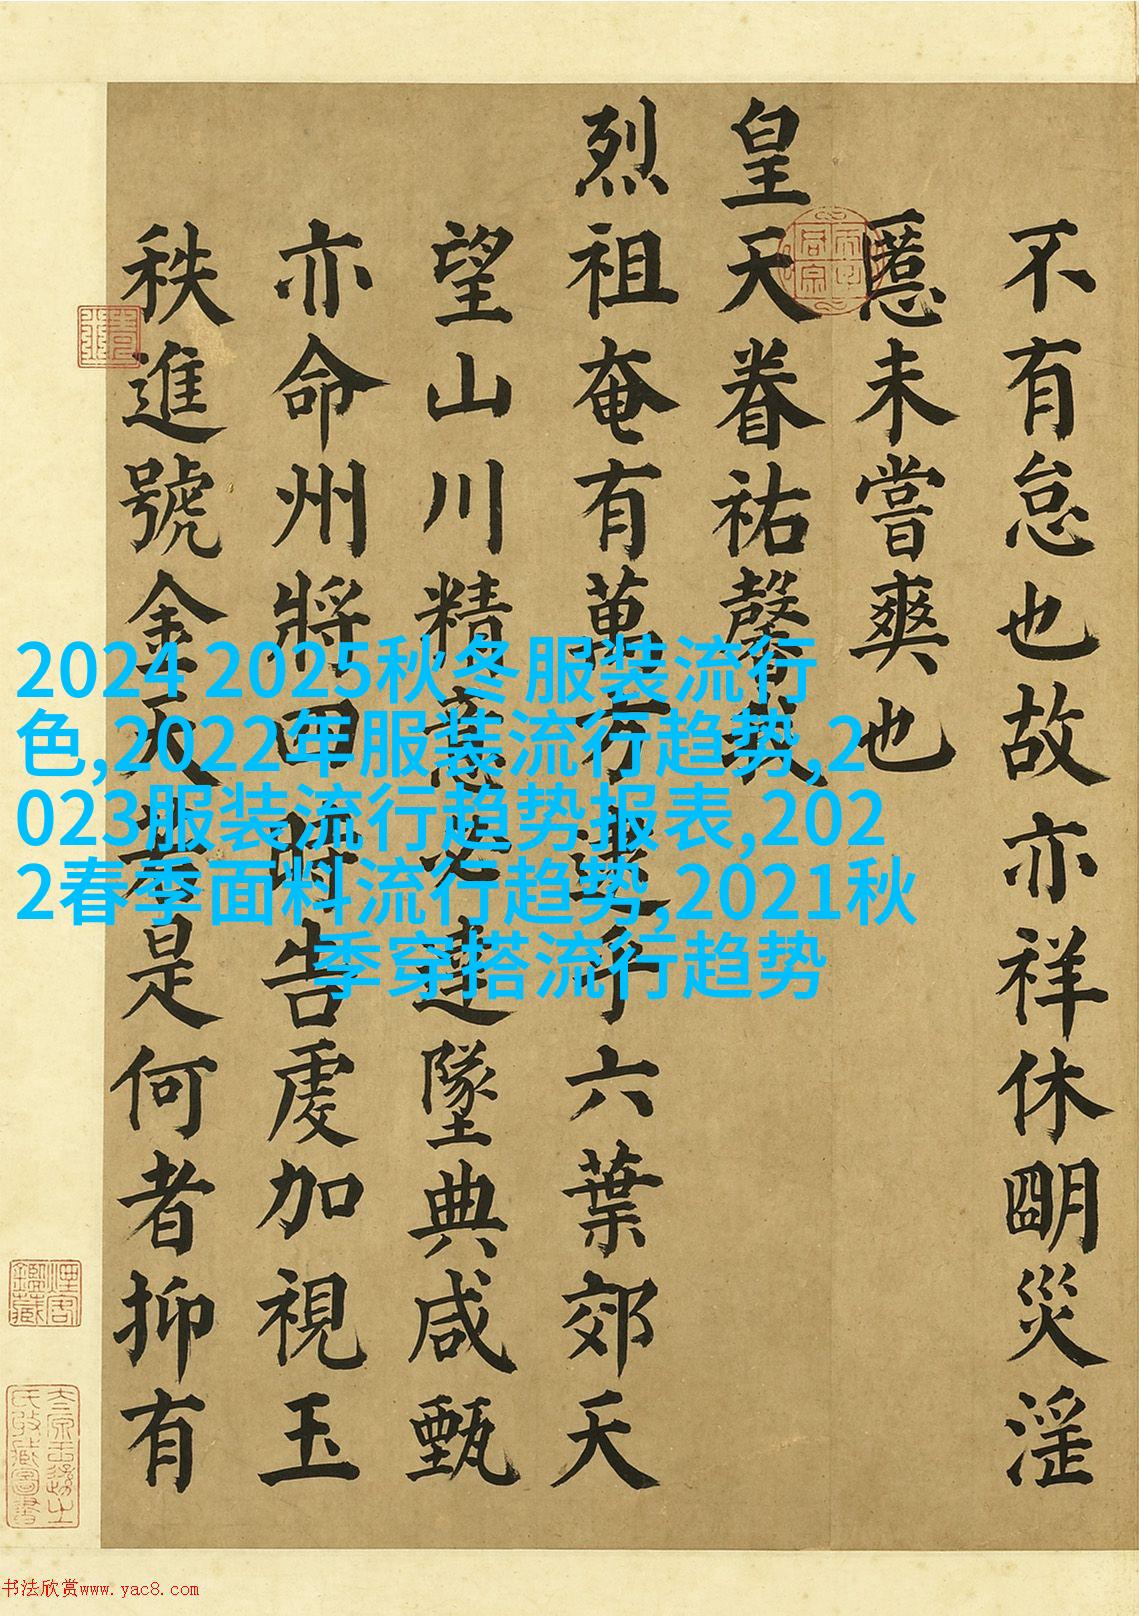 不有怠也故亦祥休朙災淫
慝未嘗爽也
皇天眷祐馨
烈祖奄有萬方乎六葉郊天
望山川精意必達墜典咸甄
亦命州將告虔加視玉
秩進號金天是何者抑有
2024 2025秋冬服装流行
色,2022年服装流行趋势,2
023服装流行趋势报表,202
2春季面料流行趋势,2021秋
季穿搭流行趋势
书法欣赏www.yac8.com